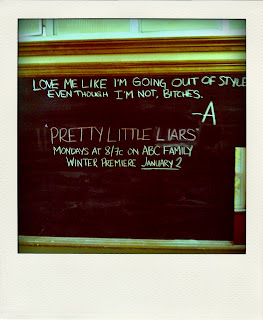 LOVE ME LIKE I'M GOING OUT OF STYLE
EVEN THOUGH I'M NOT, BITCHES.
-A
"PRETTY LITTLE LIARS"
MONDAYS AT 8/7c ON ABC FAMILY
WINTER PREMIERE JANUARY 2